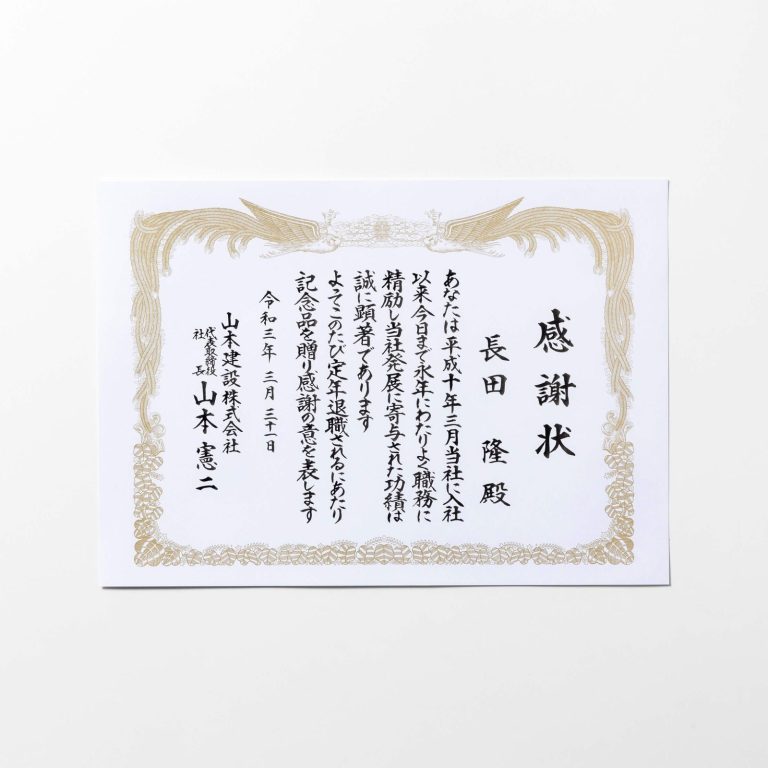 感謝状
長田 隆 殿
あなたは平成十年三月当社に入社
以来今日まで永年にわたりよく職務に
精励し当社発展に寄与された功績は
誠に顕著であります
よってこのたび定年退職されるにあたり
記念品を贈り感謝の意を表します
令和三年 三月 三十一日
山本建設株式会社
代表取締役
社長 山本憲二